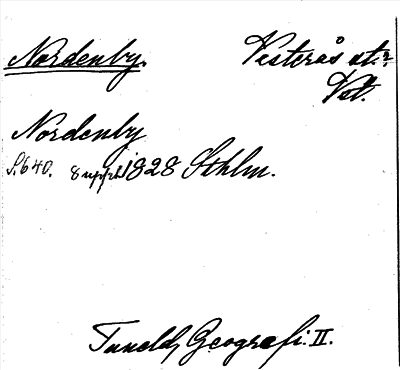 Nordenby. Vesterås st:r
Vst.
Nordenby
S. 640. 8 uppl. 1828 Sthlm.
Tuneld, Geografi. II.